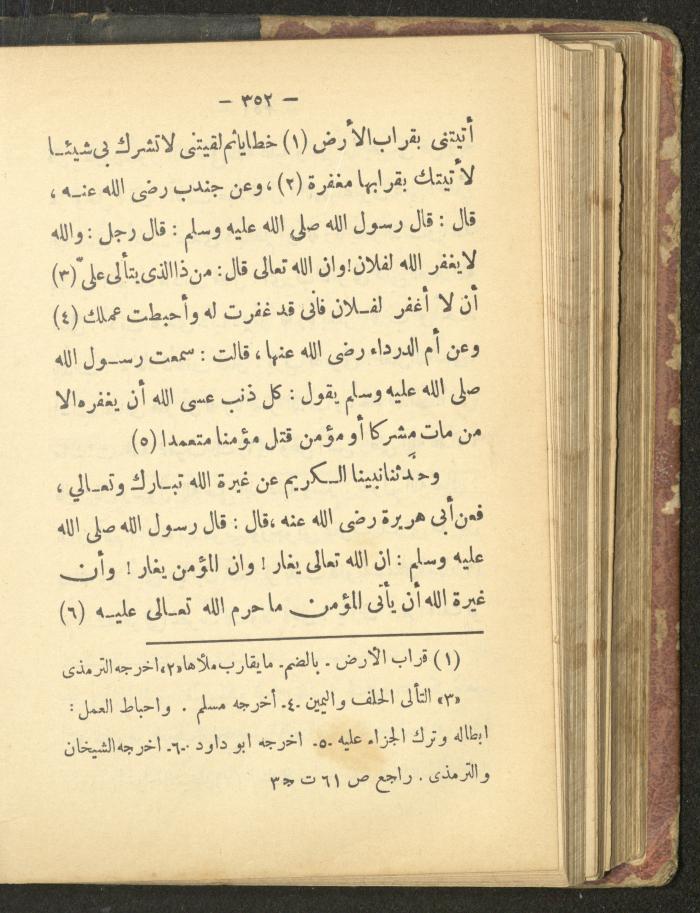 — ٣٥٢ —
أتيتنى بقراب الأرض (١) خطايا ثم لقيتنى لا تشرك بى شيئـا
لأتيتك بقرابها مغفرة (٢) ، وعن جندب رضى الله عنـه ،
قال : قال رسول الله صلى الله عليه وسلم : قال رجل : والله
لا يغفر الله لفلان ! وان الله تعالى قال : من ذا الذى يتألى علىّ (٣)
أن لا أغفر لفـلان فانى قد غفرت له وأحبطت عملك (٤)
وعن أم الدرداء رضى الله عنها ، قالت : سمعت رسـول الله
صلى الله عليه وسلم يقول : كل ذنب عسى الله أن يغفره الا
من مات مشركا أو مؤمن قتل مؤمنا متعمدا (٥)
وحدَّثنا نبينا الـكريم عن غيرة الله تبـارك وتعـالي ،
فعن أبى هريرة رضى الله عنه ، قال : قال رسول الله صلى الله
عليه وسلم : ان الله تعالى يغار ! وان المؤمن يغار ! وأن
غيرة الله أن يأتى المؤمن ما حرم الله تعـالى عليـه (٦)
(١) قراب الأرض - بالضم - ما يقارب ملأها «٢» اخرجه الترمذى
«٣» التألى الحلف واليمين -٤- أخرجه مسلم . واحباط العمل :
ابطاله وترك الجزاء عليه -٥- اخرجه ابو داود -٦- اخرجه الشيخان
والترمذى . راجع ص ٦١ ت ج ٣